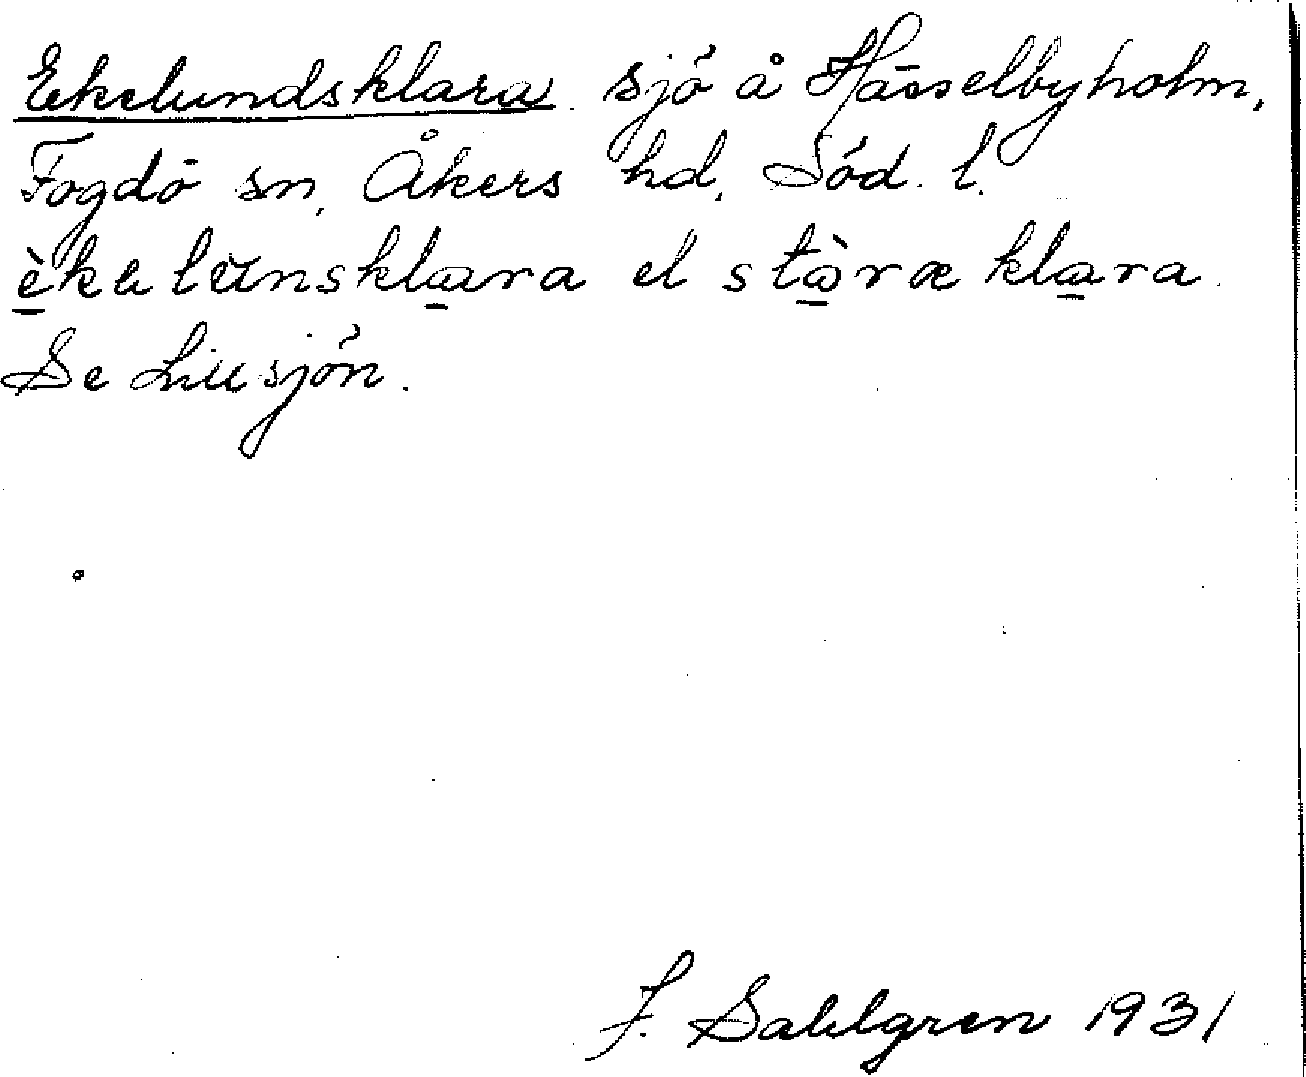 Ekelundsklara sjö å Hässelbyholm,
Fogdö sn, Åkers hd, Söd. l.
èkelunsklara el stòræ klara.
Se Lillsjön.
J. Sahlgren 1931